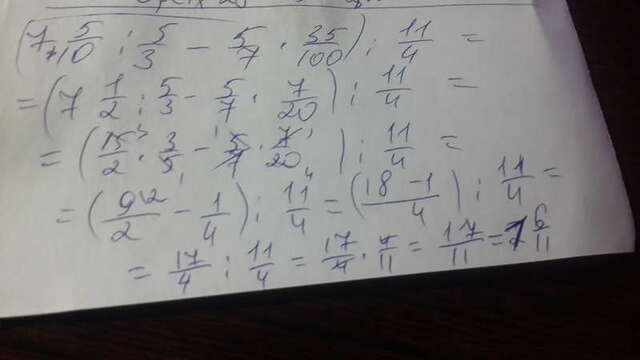 (7 5/10 : 5/3 - 5/7 · 35/100) : 11/4 =
= (7 1/2 : 5/3 - 5/7 · 7/20) : 11/4 =
= (15/2 · 3/5 - 5/7 · 7/20) : 11/4 =
= (9/2 - 1/4) : 11/4 = (18-1/4) : 11/4 =
= 17/4 : 11/4 = 17/4 · 4/11 = 17/11 = 1 6/11